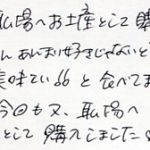 職場へお土産として購
んあんお好きじゃないと
美味しい66と食べてま
今回も又、職場へ
として購入しました。